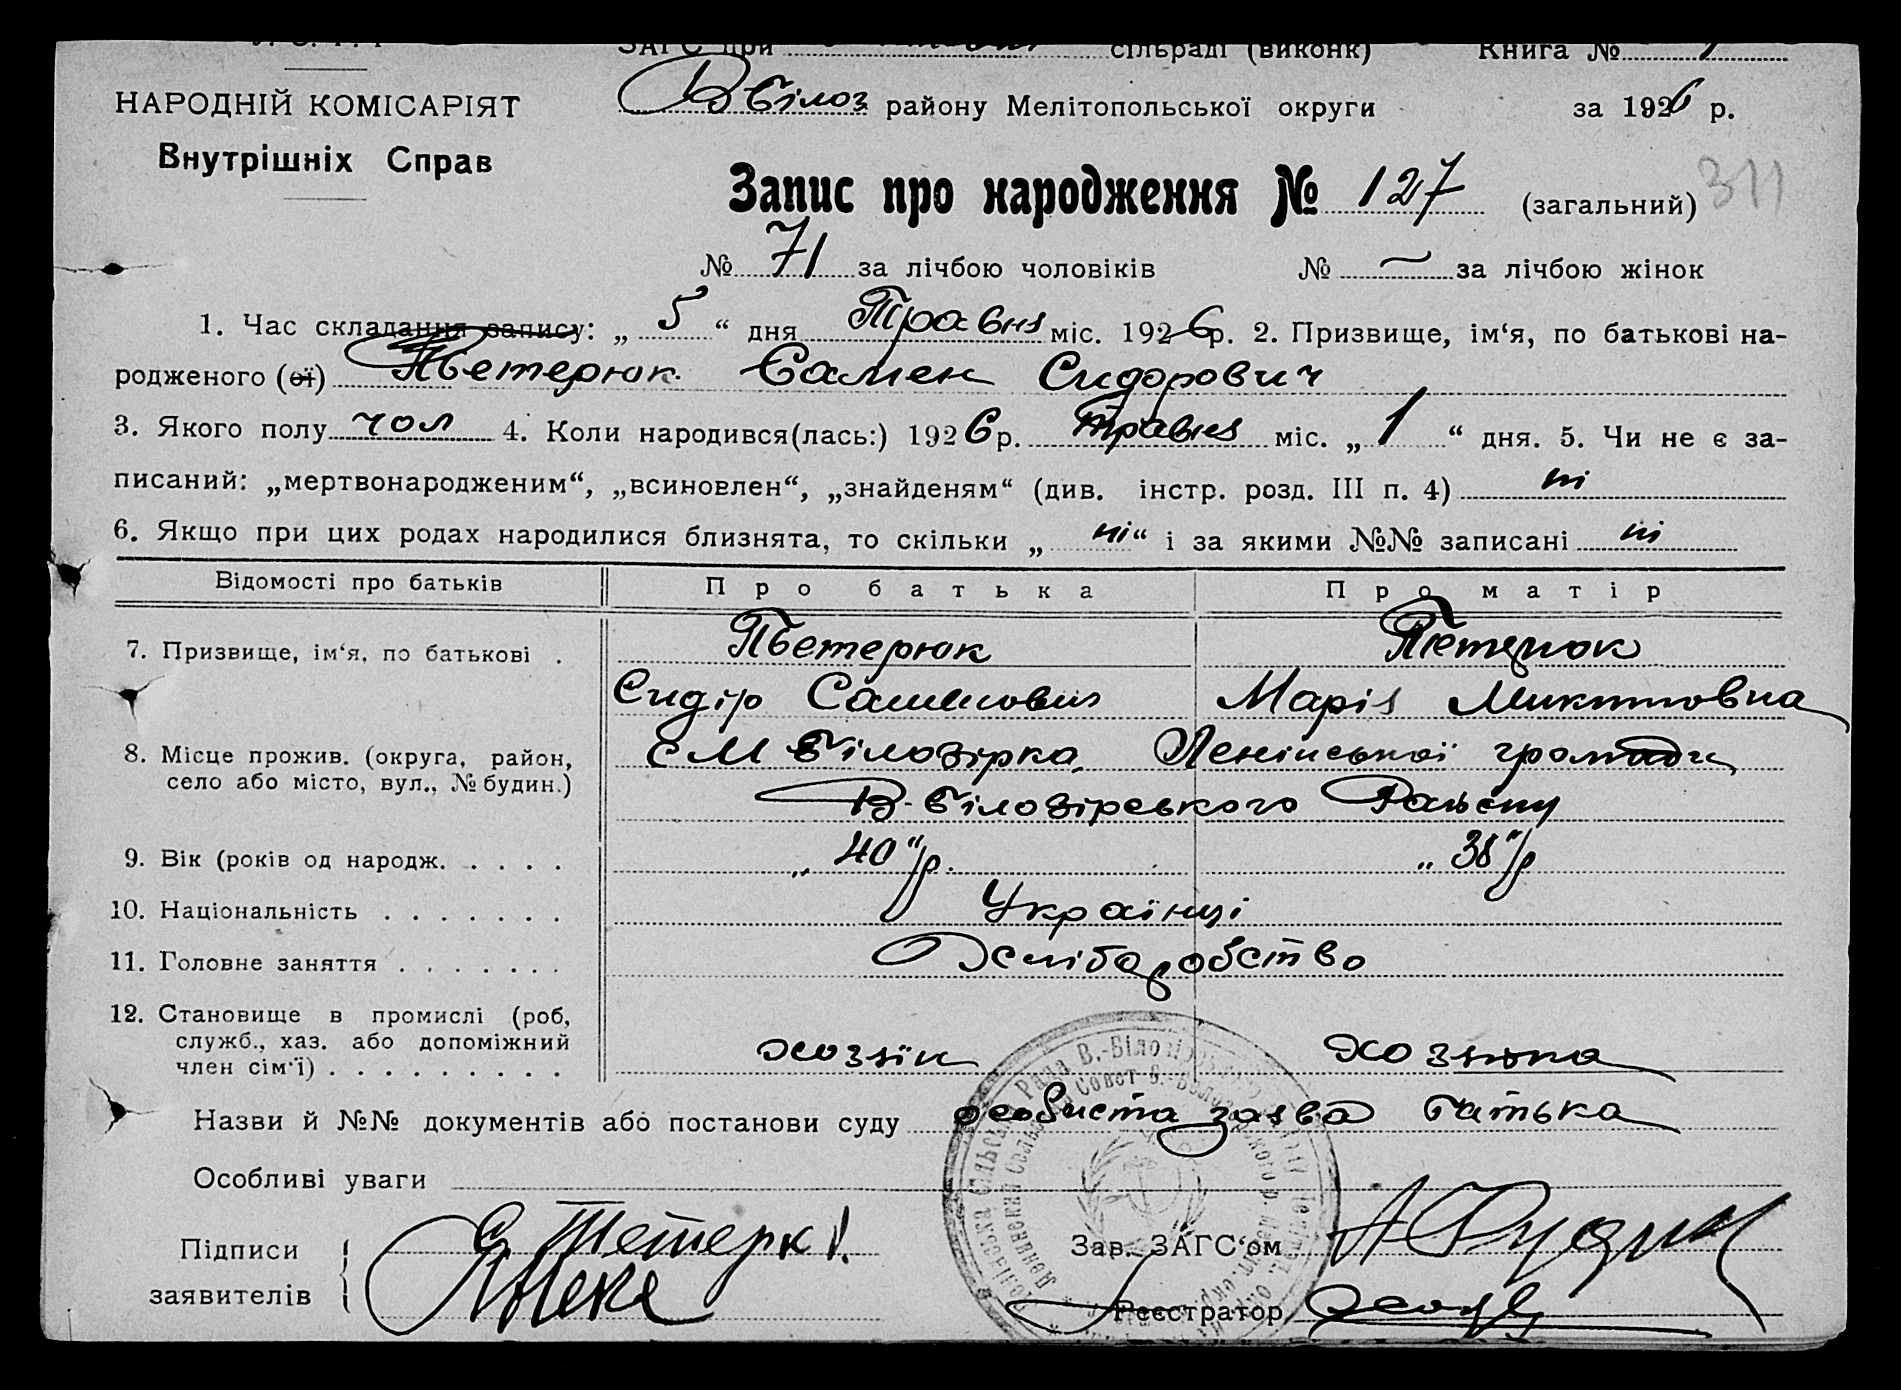 ЗАГС при сільраді (виконк) Книга №
НАРОДНІЙ КОМІСАРІЯТ
В Білоз району Мелітопольської округи за 1926 р.
Внутрішніх Справ
Запис про народження № 127 (загальний) 311
№ 71 за лічбою чоловіків № — за лічбою жінок
1. Час складання запису: „ 5 “ дня Травня міс. 1926 р. 2. Призвище, ім‘я, по батькові на-
родженого (ої) Пьетерюк Самен Сидорович
3. Якого полу чол 4. Коли народився(лась:) 1926 р. травня міс. „ 1 “ дня. 5. Чи не є за-
писаний: „мертвонародженим“, „всиновлен“, „знайденям“ (див. інстр. розд. III п. 4) ні
6. Якщо при цих родах народилися близнята, то скільки „ ні “ і за якими №№ записані ні
Відомості про батьків Про батька Про матір
7. Призвище, ім‘я, по батькові . Пьетерюк
Сидір Марія Микитовна
8. Місце прожив. (округа, район, село або місто, вул., № будин.) см Білозірка, Ленінської громади
В-Білозірського Району
9. Вік (років од народж. . . . . „ 40 “ р. „ 38 “ р
10. Національність . . . . . . . Українці
11. Головне заняття . . . . . . . Хліборобство
12. Становище в промислі (роб, служб., хаз. або допоміжний член сім‘ї) . . . . . . . . . хозяїн хозяйка
Назви й №№ документів або постанови суду особиста заява батька
Особливі уваги
Підписи
заявителів
Зав. ЗАГС‘ом
Реєстратор